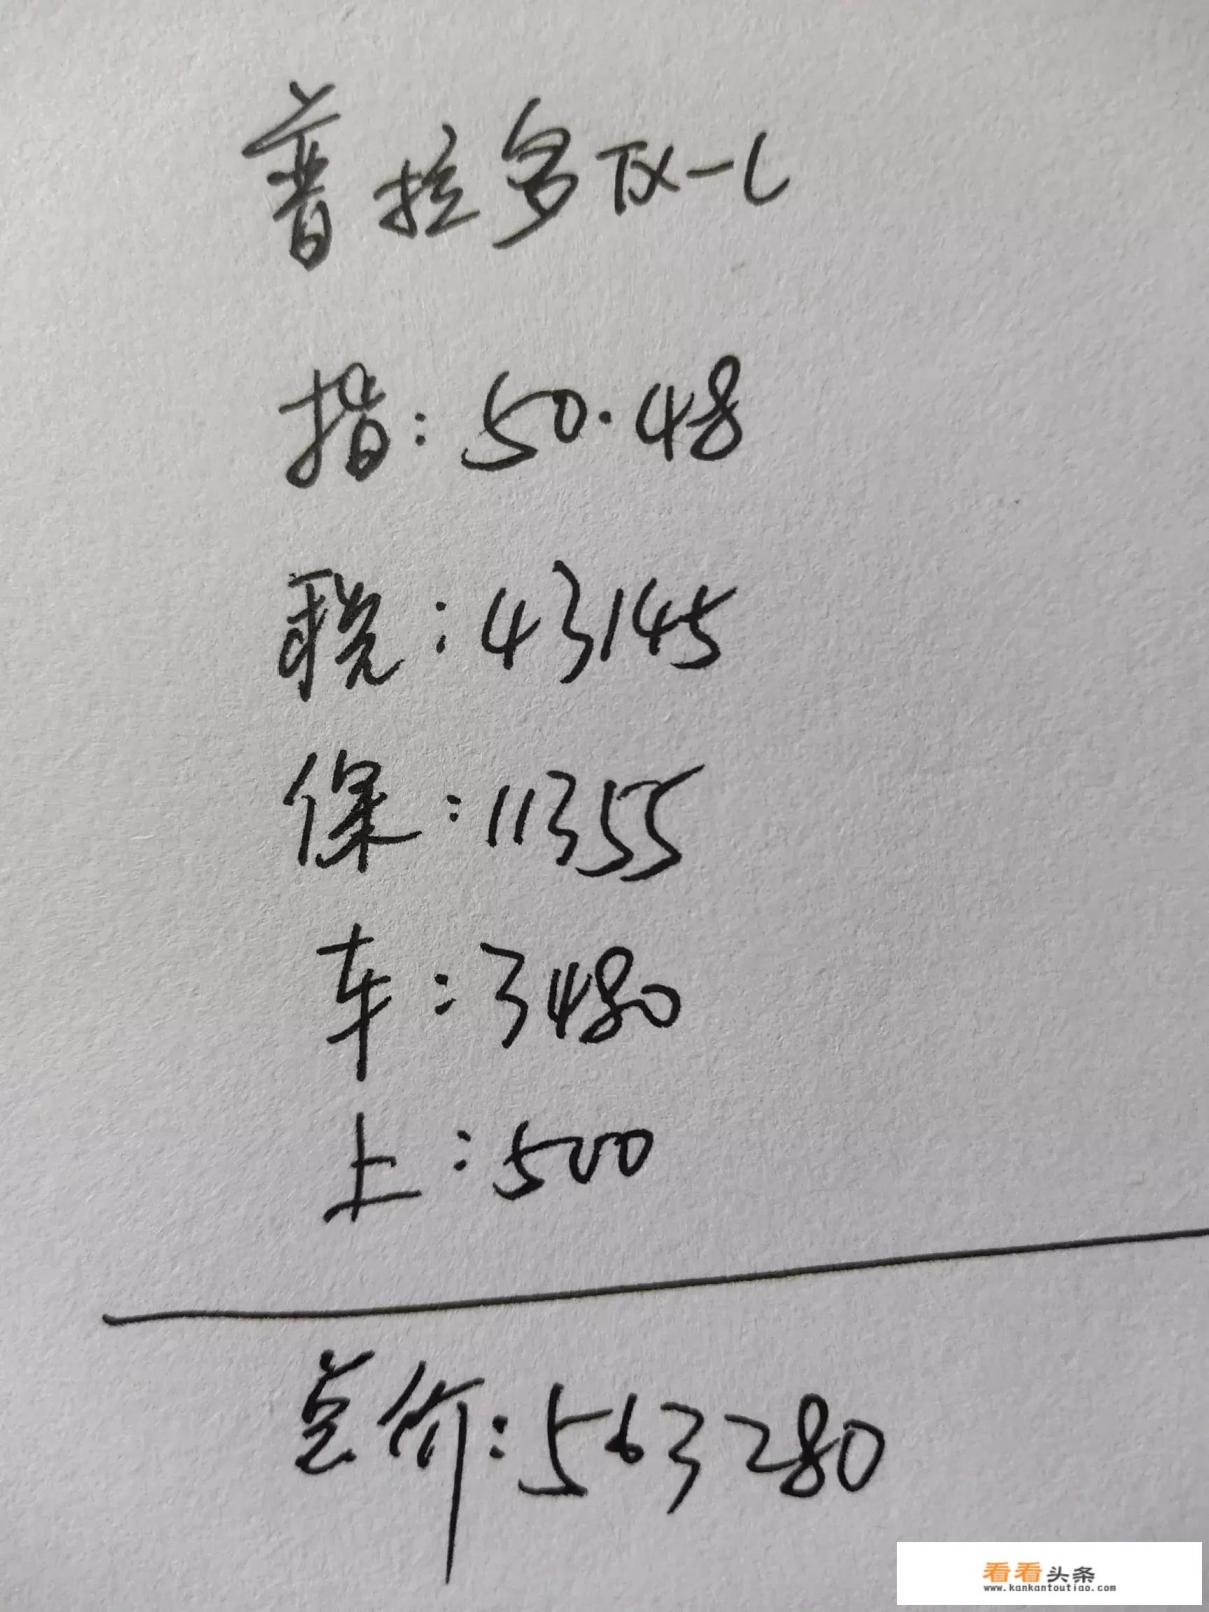 普拉多TX-L
指:50.48
税:43145
保:11355
车:3480
上:500
总价:563280
看看头条
www.kankantoutiao.com